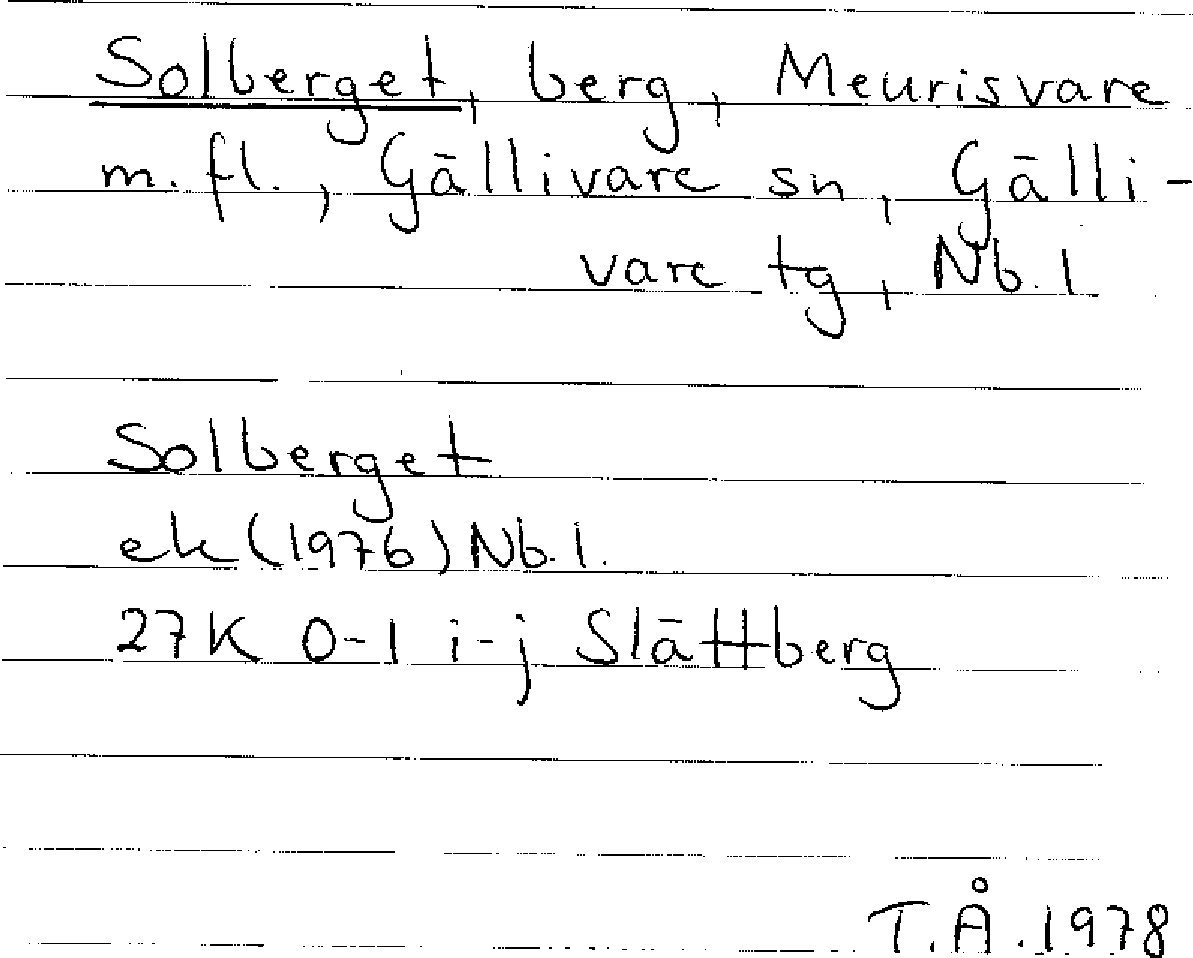 Solberget, berg, Meurisvare
m. fl., Gällivare sn, Gälli-
vare tg, Nb. l
Solberget
ek (1976) Nb. l.
27K 0-1 i-j Slättberg
T.Å. 1978